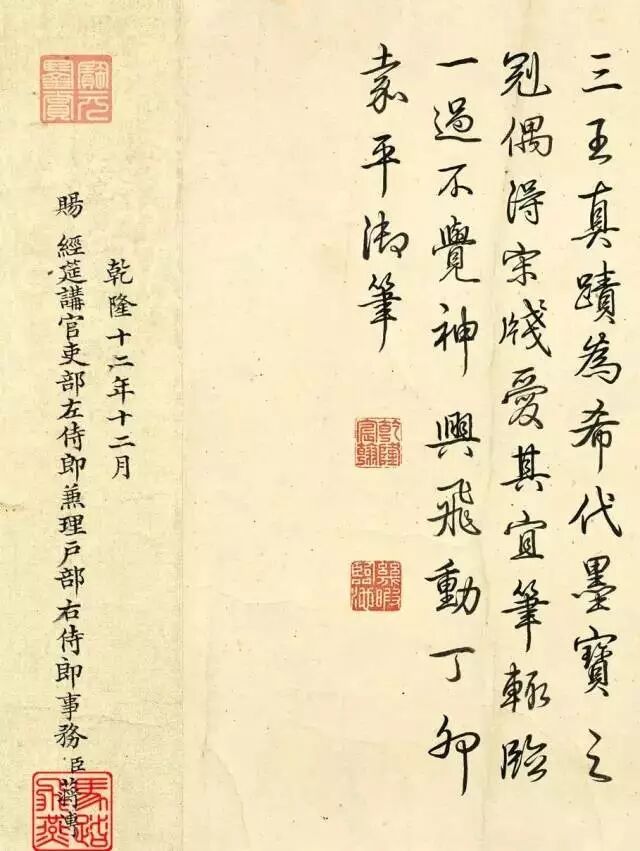 三王真蹟為希代墨寶之
冠偶得宋牋愛其宜筆輒臨
一過不覺神興飛動丁卯
嘉平御筆
乾隆宸翰
幾暇臨池
乾隆十二年十二月
賜 經筵講官吏部左侍郎兼理戶部右侍郎事務臣蔣溥
馬踏飛燕